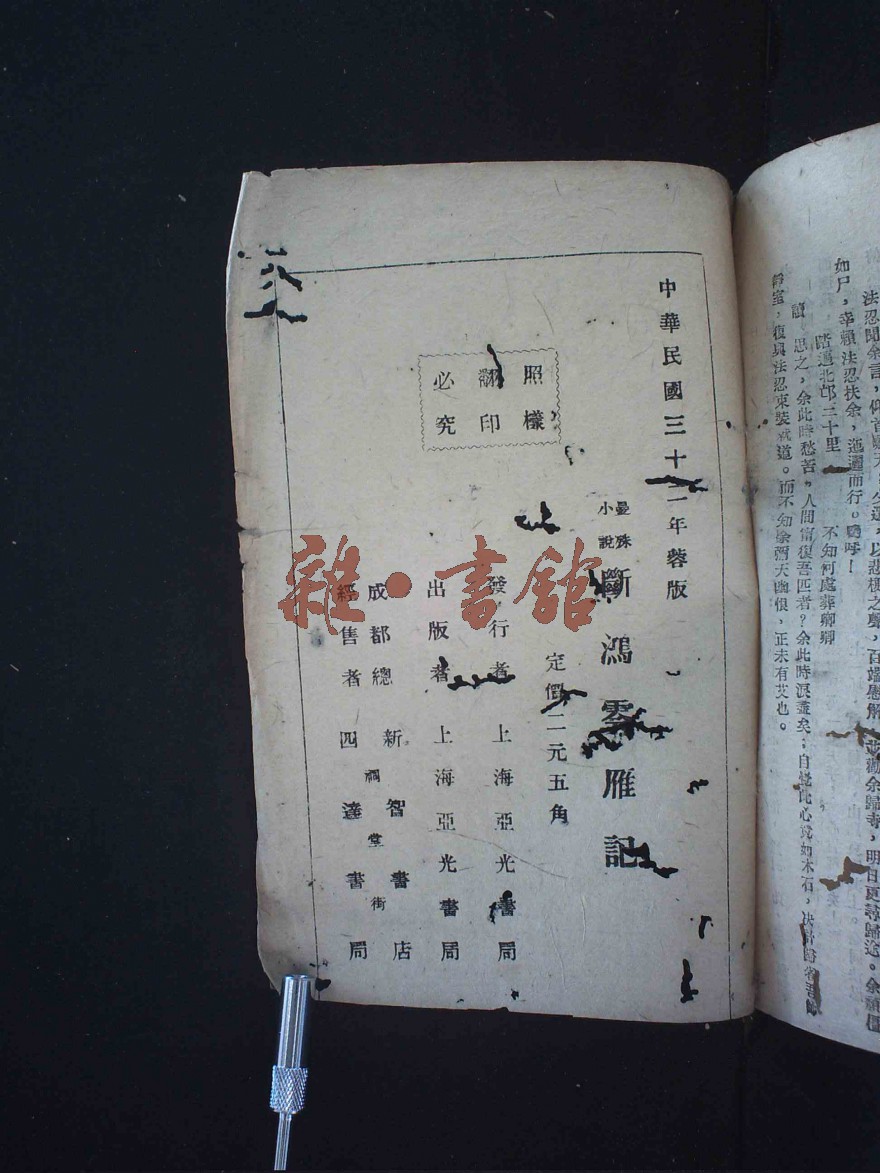 法忍聞余言，仰首
如尸，幸賴法忍扶余，迤邐而行。嗚呼！
踏遍北邙三十里 不知何處葬卿卿
讀 思之，余此時愁苦，人間寧復吾匹者？余此時淚盡矣；自覺此心竟如木石，決
靜室，復與法忍束裝就道。而不知余彌天幽恨，正未有艾也。
中華民國三十 年蓉版
曼殊小說
斷鴻零雁記
定價二元五角
照樣
翻印
必究
發行者 上海亞光書局
出版者 上海亞光書局
成都總經售者
新智書店
祠堂街
四達書局
雜·書館